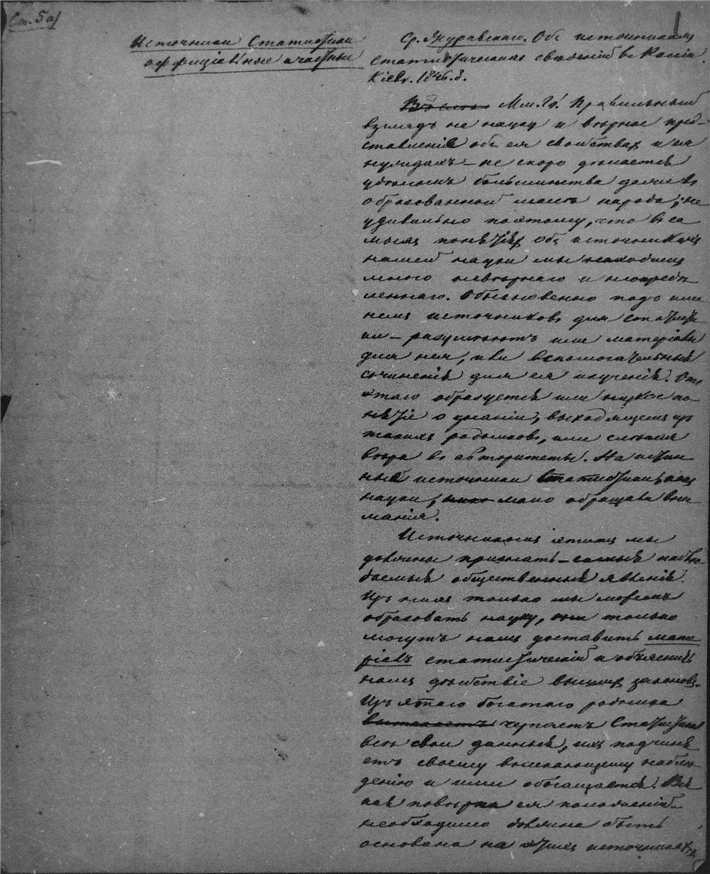 Ст. 5 а)
Источники Статистики
оффиціальные и частные
Ср. Журавскаго. Объ источникахъ
статистическихъ свѣдѣній въ Россіи
Кіевъ. 1846. 8.
Мм. Гг! Правильный
взглядъ на науку и вѣрное пред-
ставленіе объ ея свойствахъ и ея
нуждахъ – не скоро дѣлается
удѣломъ большинства даже въ
образованной массѣ народа; не
удивительно поэтому, что въ са
мыхъ понятіяхъ объ источникахъ
нашей науки мы находимъ
много невѣрнаго и неопредѣ
леннаго. Обыкновенно подъ име
немъ источниковъ для статисти
ки – разумѣютъ или матеріалы
для нея, или вспомогательныя
сочиненія для ея изученія. Отъ
этого образуется или низкое по
нятіе о знаніи, выходящемъ изъ
такихъ родниковъ, или слѣпая
вѣра въ авторитеты. На истин
ные источники Статистики, какъ
науки, мало обращали вни
манія.
Источниками этими мы
должны признать – самыя наблю
даемыя общественныя явленія.
Изъ нихъ только мы можемъ
образовать науку, они только
могутъ намъ доставить мате
ріалъ статистическій и объяснить
намъ дѣйствіе высшихъ законовъ.
Изъ этого богатаго родника
черпаетъ Статистика
всѣ свои данныя, ихъ подчиня
етъ своему наблю
денію и ими обогащается. Вся
кая повѣрка ея положеній
необходимо должна быть
основана на этихъ источникахъ